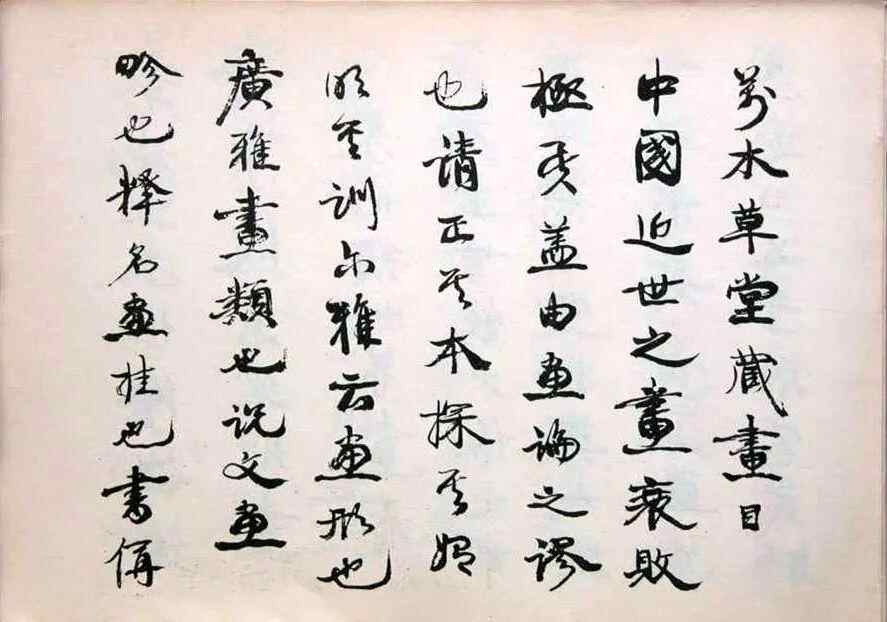 万木草堂藏畫目
中國近世之畫衰敗
極矣蓋由画論之謬
也請正其本探其始
明其訓尔雅云画形也
廣雅畫類也説文画
畛也釋名画挂也書偁